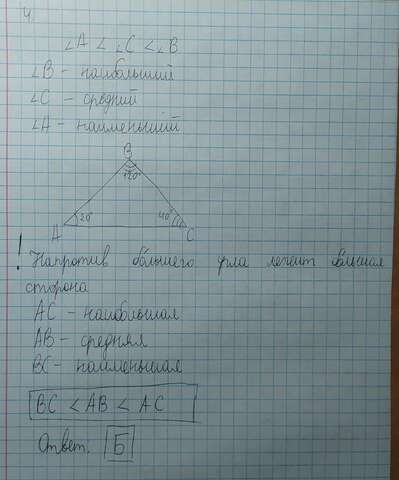 4
∠A < ∠C < ∠B
∠B - наибольший
∠C - средний
∠A - наименьший
B
120°
20°
40°
A
C
! Напротив большего угла лежит большая
сторона
AC - наибольшая
AB - средняя
BC - наименьшая
BC < AB < AC
Ответ. Б